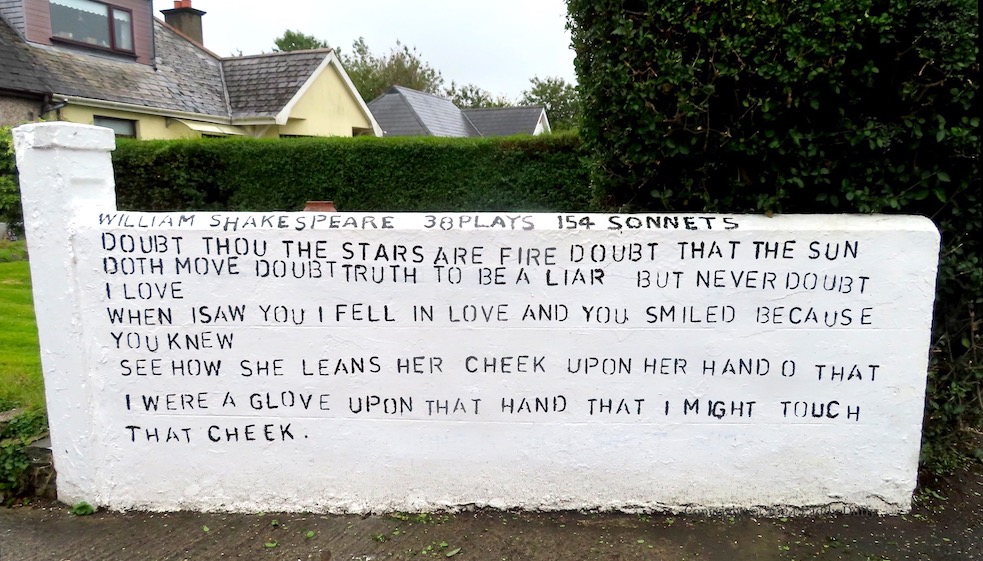 WILLIAM SHAKESPEARE 38PLAYS 154 SONNETS
DOUBT THOU THE STARS ARE FIRE DOUBT THAT THE SUN
DOTH MOVE DOUBT TRUTH TO BE A LIAR BUT NEVER DOUBT
I LOVE
WHEN ISAW YOU I FELL IN LOVE AND YOU SMILED BECAUSE
YOU KNEW
SEE HOW SHE LEANS HER CHEEK UPON HER HAND O THAT
I WERE A GLOVE UPON THAT HAND THAT I MIGHT TOUCH
THAT CHEEK.